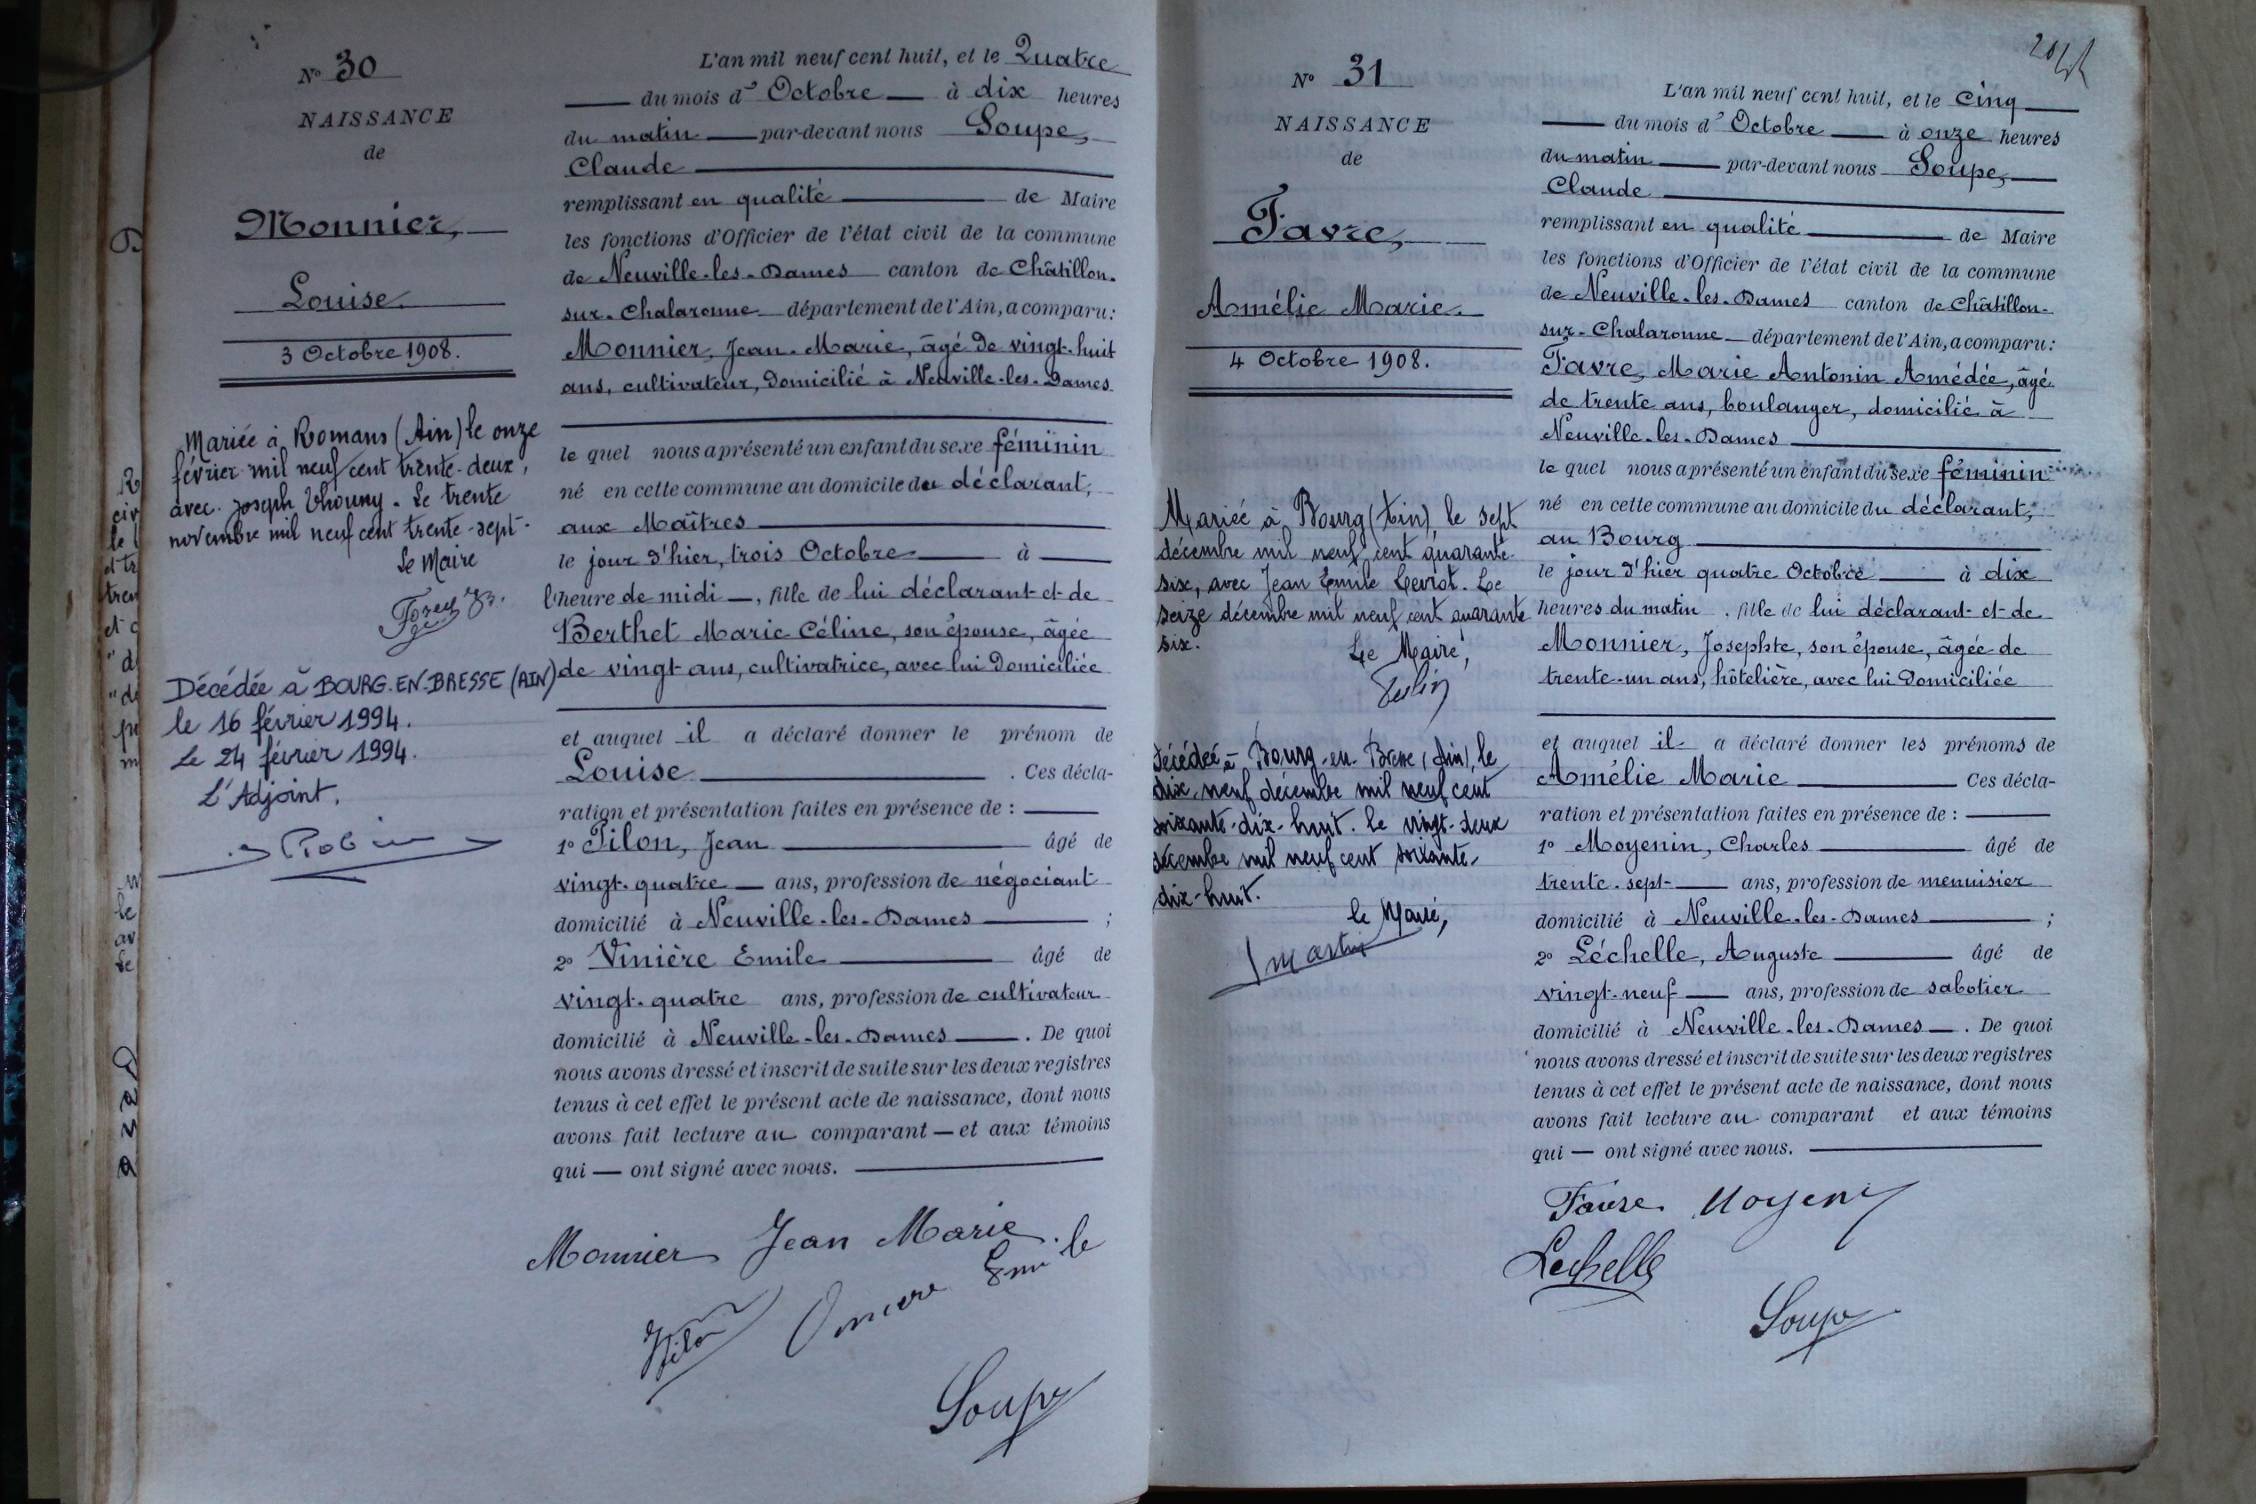 N° 30
NAISSANCE
de
Monnier,
Louise.
3 Octobre 1908.
Mariée à Romans (Ain) le onze
février mil neuf cent trente-deux,
avec Joseph Thouny. Le trente
novembre mil neuf cent trente-sept.
Le Maire
Décédée à BOURG-EN-BRESSE (AIN)
le 16 février 1994.
Le 24 février 1994.
L'Adjoint,
Robin
L'an mil neuf cent huit, et le Quatre
du mois d' Octobre à dix heures
du matin par-devant nous Soupe,
Claude
remplissant en qualité de Maire
les fonctions d'Officier de l'état civil de la commune
de Neuville-les-Dames canton de Châtillon-
sur-Chalaronne département de l'Ain, a comparu:
Monnier, Jean-Marie, âgé de vingt-huit
ans, cultivateur, domicilié à Neuville-les-Dames.
le quel nous a présenté un enfant du sexe féminin
né en cette commune au domicile du déclarant,
aux Maîtres
le jour d'hier, trois Octobre à
l'heure de midi, fille de lui déclarant et de
Berthet Marie Céline, son épouse, âgée
de vingt ans, cultivatrice, avec lui domiciliée
et auquel il a déclaré donner le prénom de
Louise . Ces décla-
ration et présentation faites en présence de :
1° Pilon, Jean âgé de
vingt-quatre ans, profession de négociant
domicilié à Neuville-les-Dames ;
2° Vinière Emile âgé de
vingt-quatre ans, profession de cultivateur
domicilié à Neuville-les-Dames . De quoi
nous avons dressé et inscrit de suite sur les deux registres
tenus à cet effet le présent acte de naissance, dont nous
avons fait lecture au comparant et aux témoins
qui ont signé avec nous.
Monnier Jean Marie
Pilon Viniere Emile
Soupe
N° 31
NAISSANCE
de
Favre,
Amélie Marie.
4 Octobre 1908.
Mariée à Bourg (Ain), le sept
décembre mil neuf cent quarante-
six, avec Jean Emile Leviot. Le
seize décembre mil neuf cent quarante
six.
Le Maire,
Décédée à Bourg-en-Bresse (Ain), le
dix-neuf décembre mil neuf cent
soixante-dix-huit. Le vingt-deux
décembre mil neuf cent soixante-
dix-huit.
Le Maire,
Martin
L'an mil neuf cent huit, et le cinq
du mois d' Octobre à onze heures
du matin par-devant nous Soupe,
Claude
remplissant en qualité de Maire
les fonctions d'Officier de l'état civil de la commune
de Neuville-les-Dames canton de Châtillon-
sur-Chalaronne département de l'Ain, a comparu:
Favre, Marie Antonin Amédée, âgé
de trente ans, boulanger, domicilié à
Neuville-les-Dames
le quel nous a présenté un enfant du sexe féminin
né en cette commune au domicile du déclarant,
au Bourg
le jour d'hier quatre Octobre à dix
heures du matin . fille de lui déclarant et de
Monnier, Josephte, son épouse, âgée de
trente-un ans, hôtelière, avec lui domiciliée
et auquel il a déclaré donner les prénoms de
Amélie Marie Ces décla-
ration et présentation faites en présence de :
1° Moyenin, Charles âgé de
trente-sept ans, profession de menuisier
domicilié à Neuville-les-Dames ;
2° Léchelle, Auguste âgé de
vingt-neuf ans, profession de sabotier
domicilié à Neuville-les-Dames . De quoi
nous avons dressé et inscrit de suite sur les deux registres
tenus à cet effet le présent acte de naissance, dont nous
avons fait lecture au comparant et aux témoins
qui ont signé avec nous.
Favre Moyenin
Lechelle
Soupe